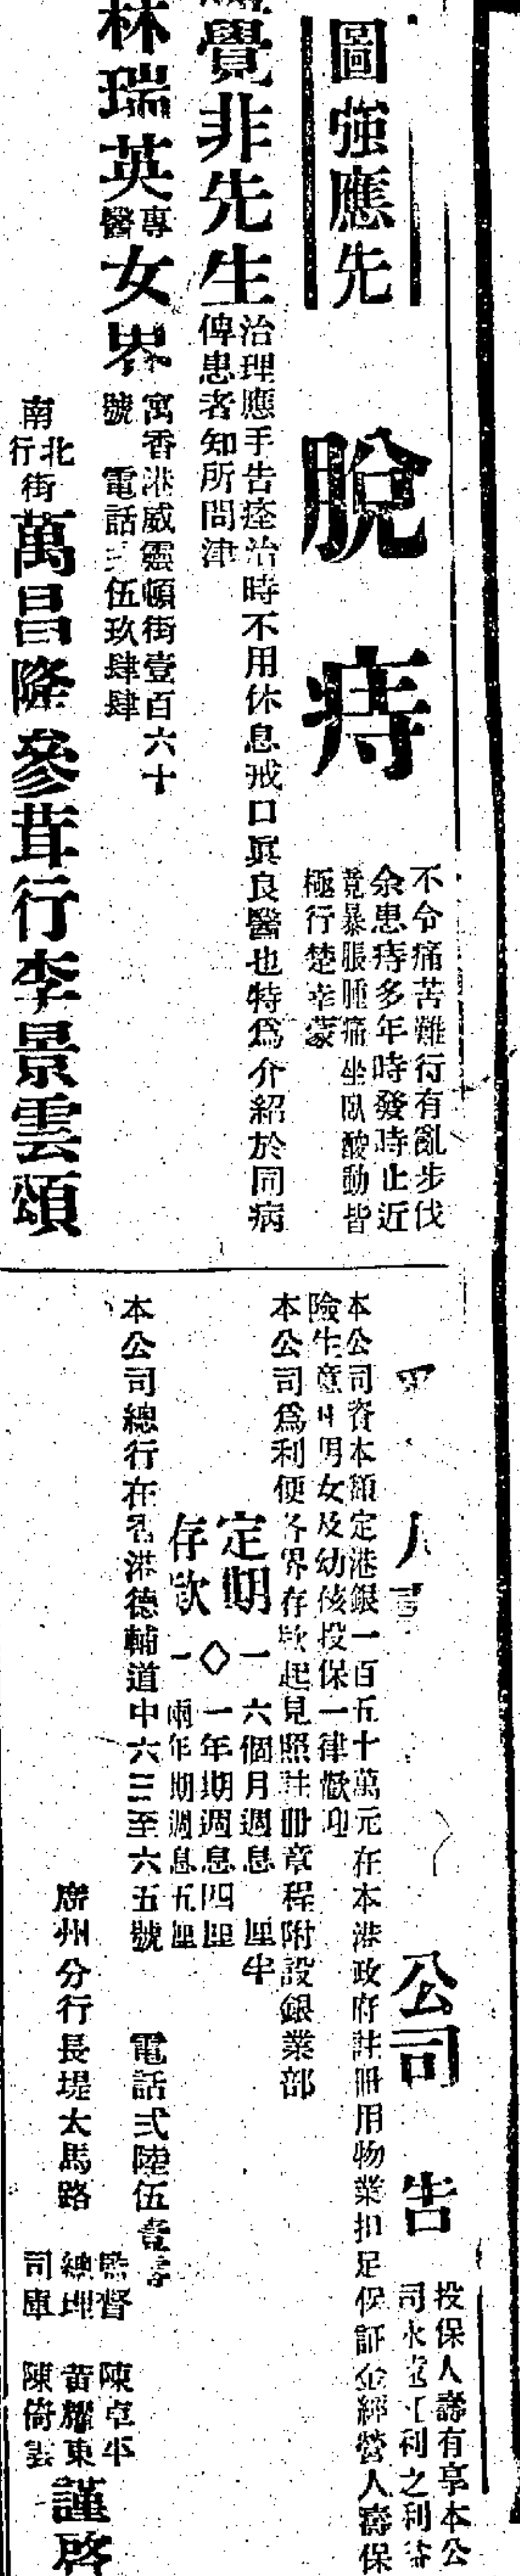 圖強應先
脫痔
不令痛苦難行有亂步伐
余患痔多年時發時止近
竟暴脹腫痛坐臥酸動皆
極行楚幸蒙
覺非先生
治理應手告痊治時不用休息戒口眞良醫也特爲介紹於同病
俾患者知所問津
林瑞英
專醫
女界
寓香港威靈頓街壹百六十
號 電話弍伍玖肆肆
南北行街
萬昌隆參茸行李景雲頌
公司
告
投保人壽有享本公
司 利之利
本公司資本額定港銀一百五十萬元在本港政府註冊用物業担足保証金經營人壽保
險生意 男女及幼孩投保一律歡迎
本公司爲利便各界存欵起見照註冊章程附設銀業部
定期存欵
一 六個月週息 厘半
◇ 一年期週息四厘
一 兩年期週息五厘
本公司總行在香港德輔道中六三至六五號
電話弍陸伍壹零
廣州分行長堤太馬路
監督 陳卓平
總理 黃耀東
司庫 陳倚雲
謹啓